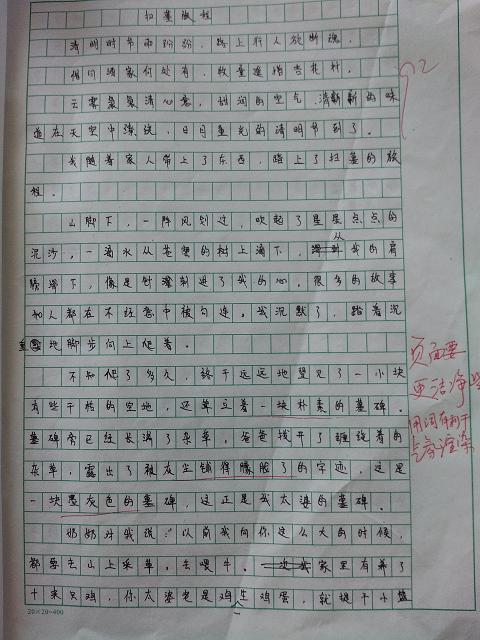 扫墓旅程
清明时节雨纷纷，路上行人欲断魂。
借问酒家何处有，牧童遥指杏花村。
云雾袅袅清心意，甜润的空气，清新新的味
道在天空中弥绕，日月重光的清明节到了。
我随着家人带上了东西，踏上了扫墓的旅
程。
山脚下，一阵风刮过，吹起了星星点点的
泥沙，一滴水从苍翠的树上滴下，从我的肩
膀滑下，像是针灌刺进了我的心，很多的故事
和人都在不经意中被勾连。我沉默了，踏着沉
重地脚步向上爬着。
不知爬了多久，终于远远地望见了一小块
有些干枯的空地，还单立着一块朴素的墓碑。
墓碑旁已经长满了杂草，爸爸找开了缠绕着的
杂草，露出了被灰尘铺得朦胧了的字迹，这是
一块墨灰色的墓碑，这正是我太婆的墓碑。
奶奶对我说："以前我向你这么大的时候，
都要去山上采草，去喂牛。家里有养了
十来只鸡，你太婆老是鸡一生鸡蛋，就提个小篮
20×20=400
92
页面要
更洁净些
用词有利于
气氛渲染